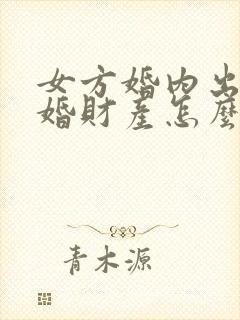 女方婚内出
婚財產怎麼
青木源